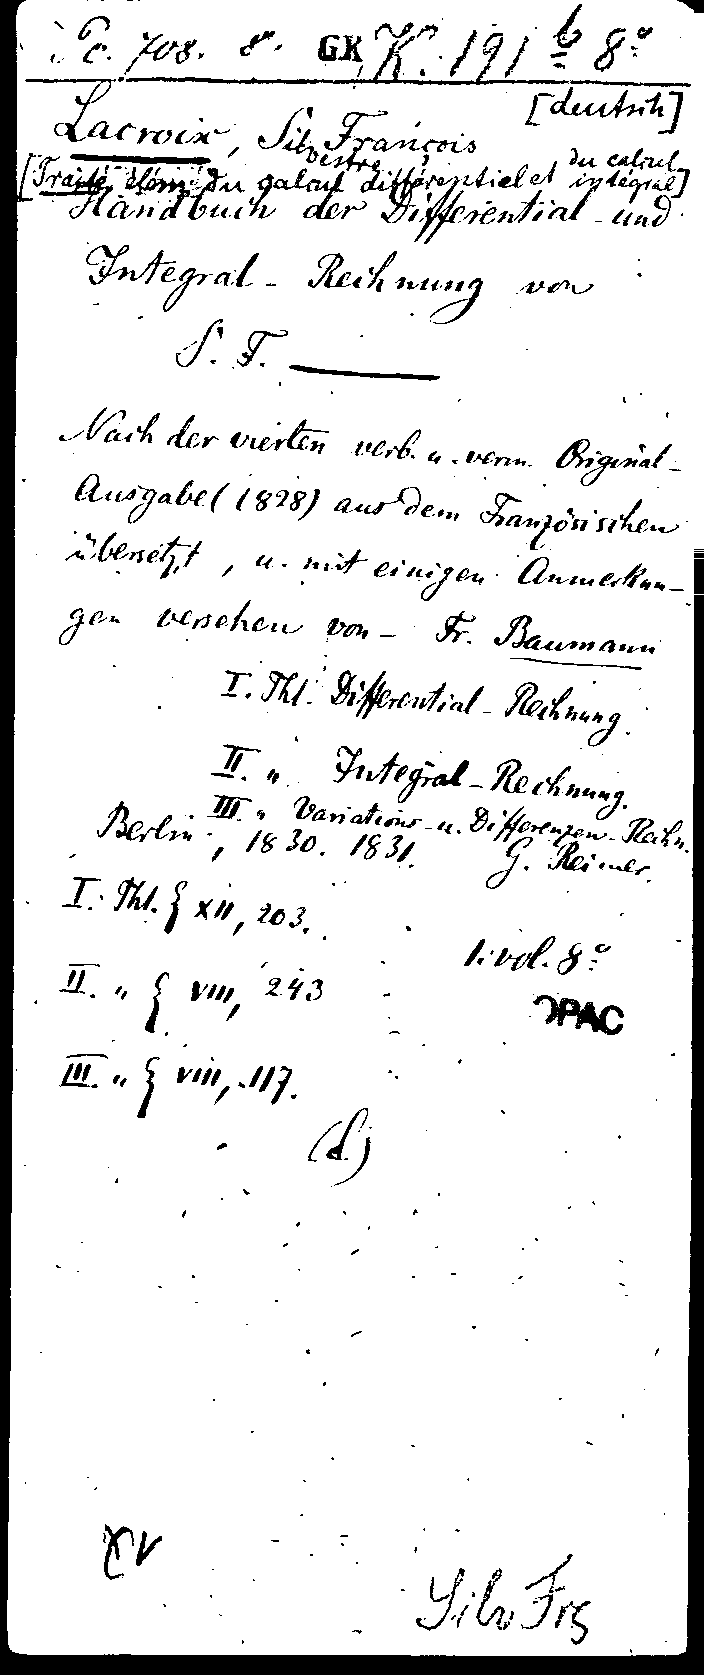 Pc. 708. 8. GK K. 191 b 8°
[deutsch]
Lacroix, Silvestre François
[Traité élém. du calcul différentiel et du calcul intégral]
Handbuch der Differential- und
Integral-Rechnung von
S. F. ———
Nach der vierten verb. u. verm. Original-
Ausgabe (1828) aus dem Französischen
übersetzt, u. mit einigen Anmerkun-
gen versehen von - Fr. Baumann
I. Thl. Differential-Rechnung.
II. " Integral-Rechnung.
III. " Variations- u. Differenzen-Rechn.
Berlin, 1830. 1831. G. Reimer.
I. Thl. { XII, 203.
1. vol. 8°
II. " { VIII, 243
OPAC
III. " { VIII, 117.
(d.)
Silv Frs